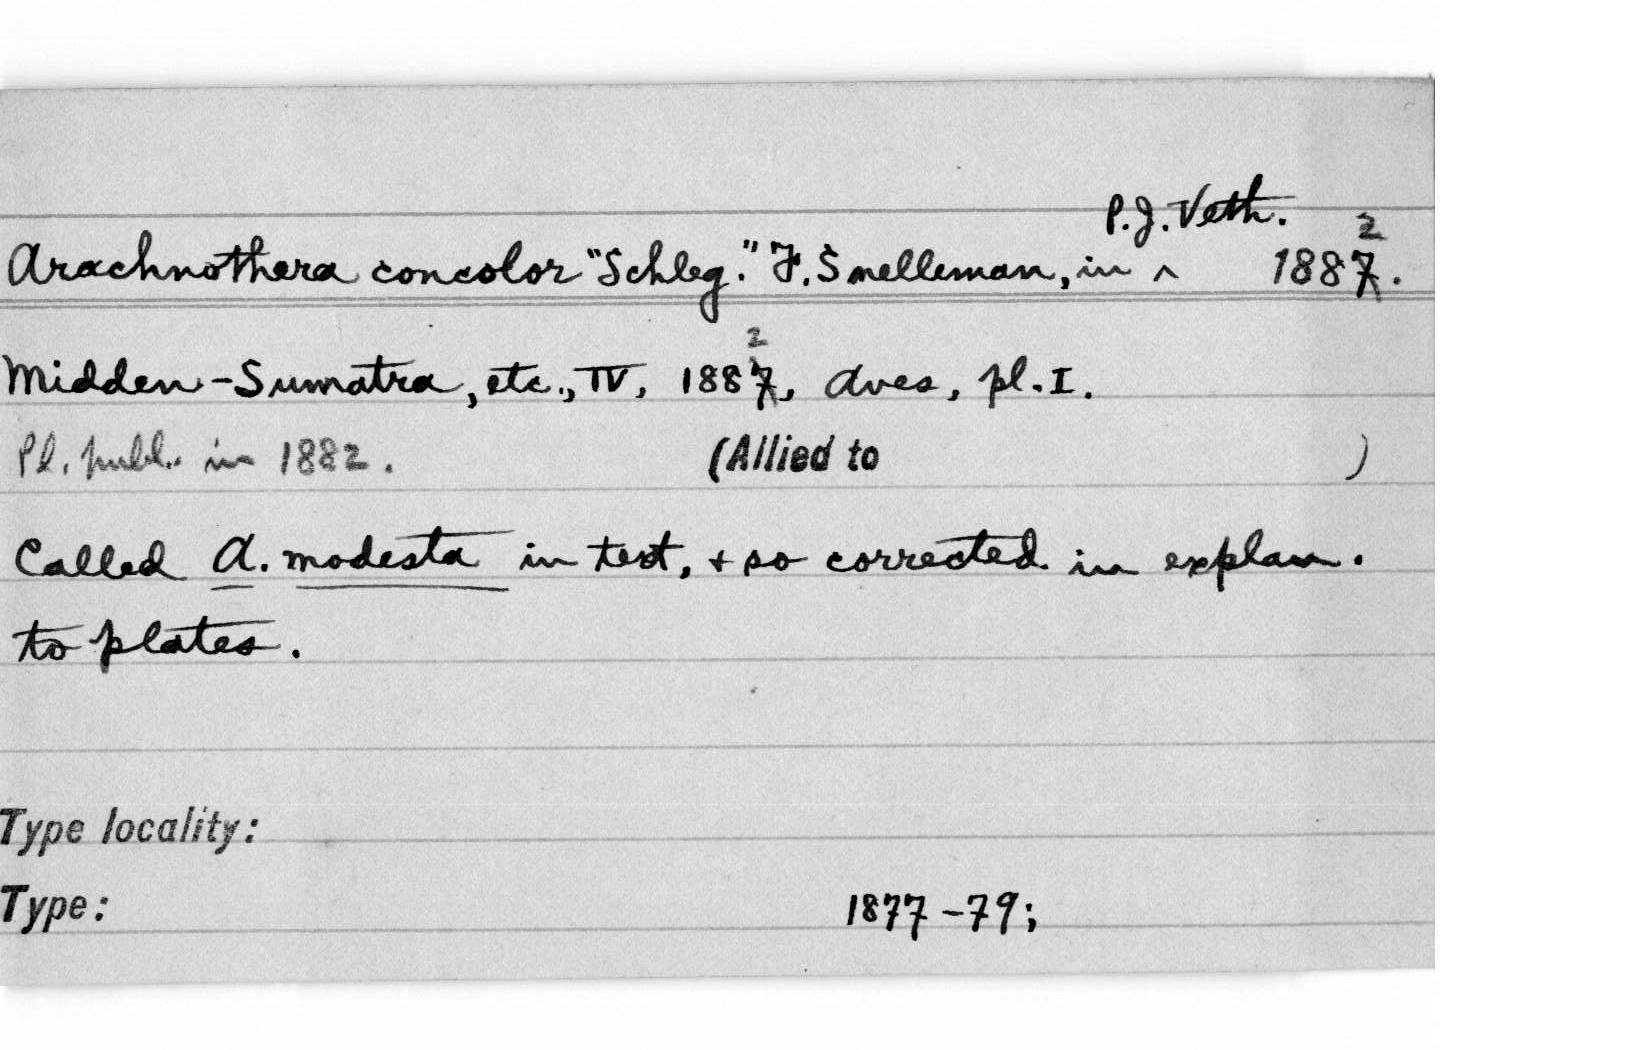 P.J. Veth. 2
Arachnothera concolor "Schleg." F. Snelleman, in ^ 1887.
2
Midden-Sumatra, etc., IV, 1887, Aves, pl. I.
Pl. publ. in 1882. (Allied to )
Called A. modesta in text, + so corrected in explan.
to plates.
Type locality:
Type: 1877-79;